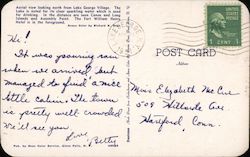 Aerial view looking north from Lake George Village. The
Lake is noted for its clear sparkling water which is used
for drinking. In the distance are Long, Canoe and
Islands and Assembly Point. The Fort William Henry
Hotel is in the foreground.
POST CARD
Address
1 CENT 1
Hi!
It was pouring rain
when we arrived but
managed to find a nice
little cabin. The town
is pretty well crowded
We'll see you
Love,
Betty
Miss Elizabeth McCue
509 Hillside Ave
Hartford, Conn.